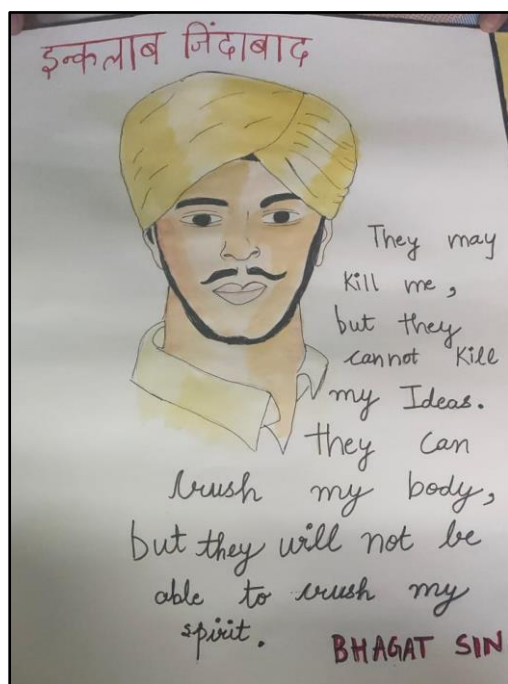 इन्कलाब जिंदाबाद
They may
Kill me,
but they
cannot Kill
my Ideas.
they can
crush my body,
but they will not be
able to crush my
spirit.
BHAGAT SIN